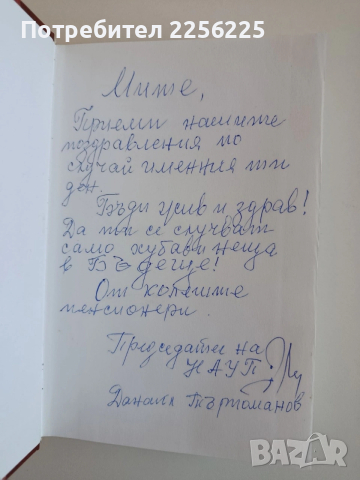 Потребител 2256225
Мите,
Приеми нашите
поздравления по
случай именния ти
ден.
Бъди жив и здрав!
Да ти се случват
само хубави неща
в Бъдеще!
От колегите
пенсионери.
Председател на
НАУП:
Данаил Търгоманов
BAZAR